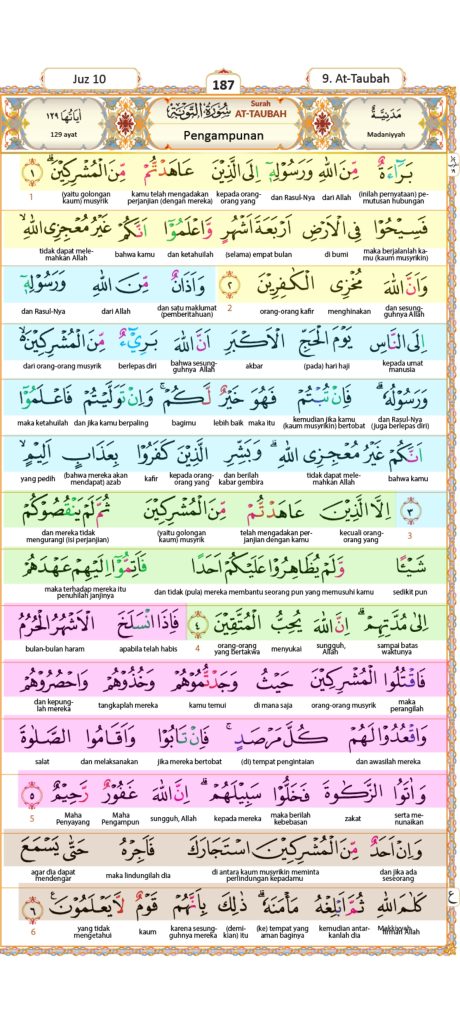 Juz 10
187
9. At-Taubah
اٰيَاتُهَا ١٢٩
129 ayat
سُوْرَةُ التَّوْبَةِ
Surah
AT-TAUBAH
Pengampunan
مَدَنِيَّةٌ
Madaniyyah
بَرَاۤءَةٌ مِّنَ اللّٰهِ وَرَسُوْلِهٖٓ اِلَى الَّذِيْنَ عَاهَدْتُّمْ مِّنَ الْمُشْرِكِيْنَۗ ١
(inilah pernyataan) pe-mutusan hubungan dari Allah dan Rasul-Nya kepada orang-orang yang kamu telah mengadakan perjanjian (dengan mereka) (yaitu golongan kaum) musyrik 1
فَسِيْحُوْا فِى الْاَرْضِ اَرْبَعَةَ اَشْهُرٍ وَّاعْلَمُوْٓا اَنَّكُمْ غَيْرُ مُعْجِزِى اللّٰهِ ۙ
maka berjalanlah ka-mu (kaum musyrikin) di bumi (selama) empat bulan dan ketahuilah bahwa kamu tidak dapat mele-mahkan Allah
وَاَنَّ اللّٰهَ مُخْزِى الْكٰفِرِيْنَ ٢ وَاَذَانٌ مِّنَ اللّٰهِ وَرَسُوْلِهٖٓ
dan sesung-guhnya Allah menghinakan orang-orang kafir 2 dan satu maklumat (pemberitahuan) dari Allah dan Rasul-Nya
اِلَى النَّاسِ يَوْمَ الْحَجِّ الْاَكْبَرِ اَنَّ اللّٰهَ بَرِيْۤءٌ مِّنَ الْمُشْرِكِيْنَ ۙ
kepada umat manusia (pada) hari haji akbar bahwa sesung-guhnya Allah berlepas diri dari orang-orang musyrik
وَرَسُوْلُهٗ ۗ فَاِنْ تُبْتُمْ فَهُوَ خَيْرٌ لَّكُمْ ۚ وَاِنْ تَوَلَّيْتُمْ فَاعْلَمُوْٓا
dan Rasul-Nya (juga berlepas diri) kemudian jika kamu (kaum musyrikin) bertobat maka itu lebih baik bagimu dan jika kamu berpaling maka ketahuilah
اَنَّكُمْ غَيْرُ مُعْجِزِى اللّٰهِ ۗ وَبَشِّرِ الَّذِيْنَ كَفَرُوْا بِعَذَابٍ اَلِيْمٍ ۙ
bahwa kamu tidak dapat mele-mahkan Allah dan berilah kabar gembira kepada orang-orang yang kafir (bahwa mereka akan mendapat) azab yang pedih
٣ اِلَّا الَّذِيْنَ عَاهَدْتُّمْ مِّنَ الْمُشْرِكِيْنَ ثُمَّ لَمْ يَنْقُصُوْكُمْ
3 kecuali orang-orang yang telah mengadakan per-janjian dengan kamu (yaitu golongan kaum) musyrik dan mereka tidak mengurangi (isi perjanjian)
شَيْـًٔا وَّلَمْ يُظَاهِرُوْا عَلَيْكُمْ اَحَدًا فَاَتِمُّوْٓا اِلَيْهِمْ عَهْدَهُمْ
sedikit pun dan tidak (pula) mereka membantu seorang pun yang memusuhi kamu maka terhadap mereka itu penuhilah janjinya
اِلٰى مُدَّتِهِمْۗ اِنَّ اللّٰهَ يُحِبُّ الْمُتَّقِيْنَ ٤ فَاِذَا انْسَلَخَ الْاَشْهُرُ الْحُرُمُ
sampai batas waktunya sungguh, Allah menyukai orang-orang yang bertakwa 4 apabila telah habis bulan-bulan haram
فَاقْتُلُوا الْمُشْرِكِيْنَ حَيْثُ وَجَدْتُّمُوْهُمْ وَخُذُوْهُمْ وَاحْصُرُوْهُمْ
maka perangilah orang-orang musyrik di mana saja kamu temui tangkaplah mereka dan kepung-lah mereka
وَاقْعُدُوْا لَهُمْ كُلَّ مَرْصَدٍ ۚ فَاِنْ تَابُوْا وَاَقَامُوا الصَّلٰوةَ
dan awasilah mereka (di) tempat pengintaian jika mereka bertobat dan melaksanakan salat
وَاٰتَوُا الزَّكٰوةَ فَخَلُّوْا سَبِيْلَهُمْۗ اِنَّ اللّٰهَ غَفُوْرٌ رَّحِيْمٌ ٥
serta me-nunaikan zakat maka berilah kebebasan kepada mereka sungguh, Allah Maha Pengampun Maha Penyayang 5
وَاِنْ اَحَدٌ مِّنَ الْمُشْرِكِيْنَ اسْتَجَارَكَ فَاَجِرْهُ حَتّٰى يَسْمَعَ
dan jika ada seseorang di antara kaum musyrikin meminta perlindungan kepadamu maka lindungilah dia agar dia dapat mendengar
كَلٰمَ اللّٰهِ ثُمَّ اَبْلِغْهُ مَأْمَنَهٗ ۗ ذٰلِكَ بِاَنَّهُمْ قَوْمٌ لَّا يَعْلَمُوْنَ ࣖ ٦
firman Allah Makkiyyah kemudian antar-kanlah dia (ke) tempat yang aman baginya (demi-kian) itu karena sesung-guhnya mereka kaum yang tidak mengetahui 6
ع